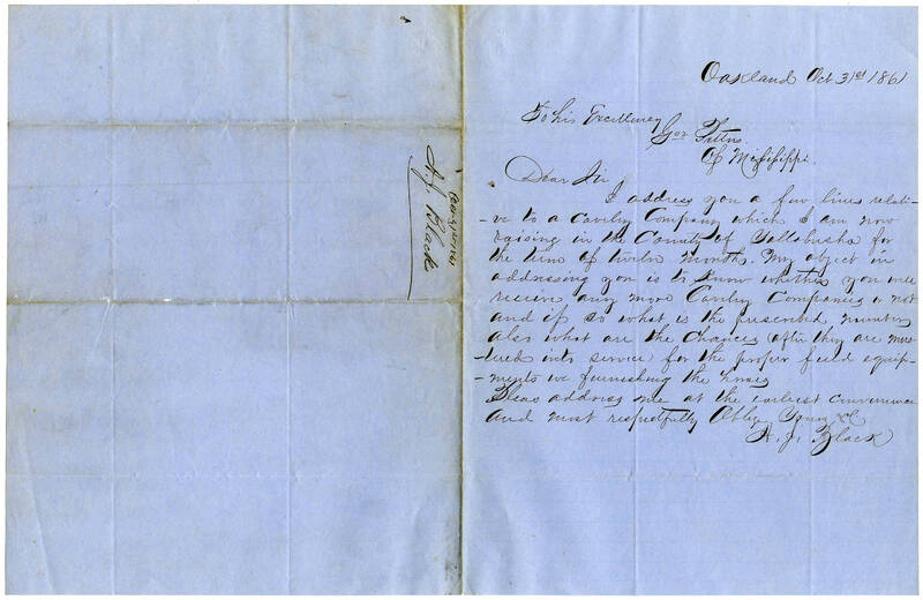 Oakland Oct 31st 1861
To his Excellency
Gov Pettus
Of Mississippi.
Dear Sir
I address you a few lines relati-
-ve to a Cavlry Company which I am now
raising in the County of Yallobusha for
the term of twelve months. My object in
addressing you is to know whether you will
receive any more Cavlry Companies or not
and if so what is the prescribed number
also what are the Chances (after they are mus-
-tered into service) for the proper field equip-
-ments we furnishing the horses
Pleas address me at the earliest convenience
and most respectfully Oblige Yours &C
A. J. Black
A. J. Black
Oct 31st 1861